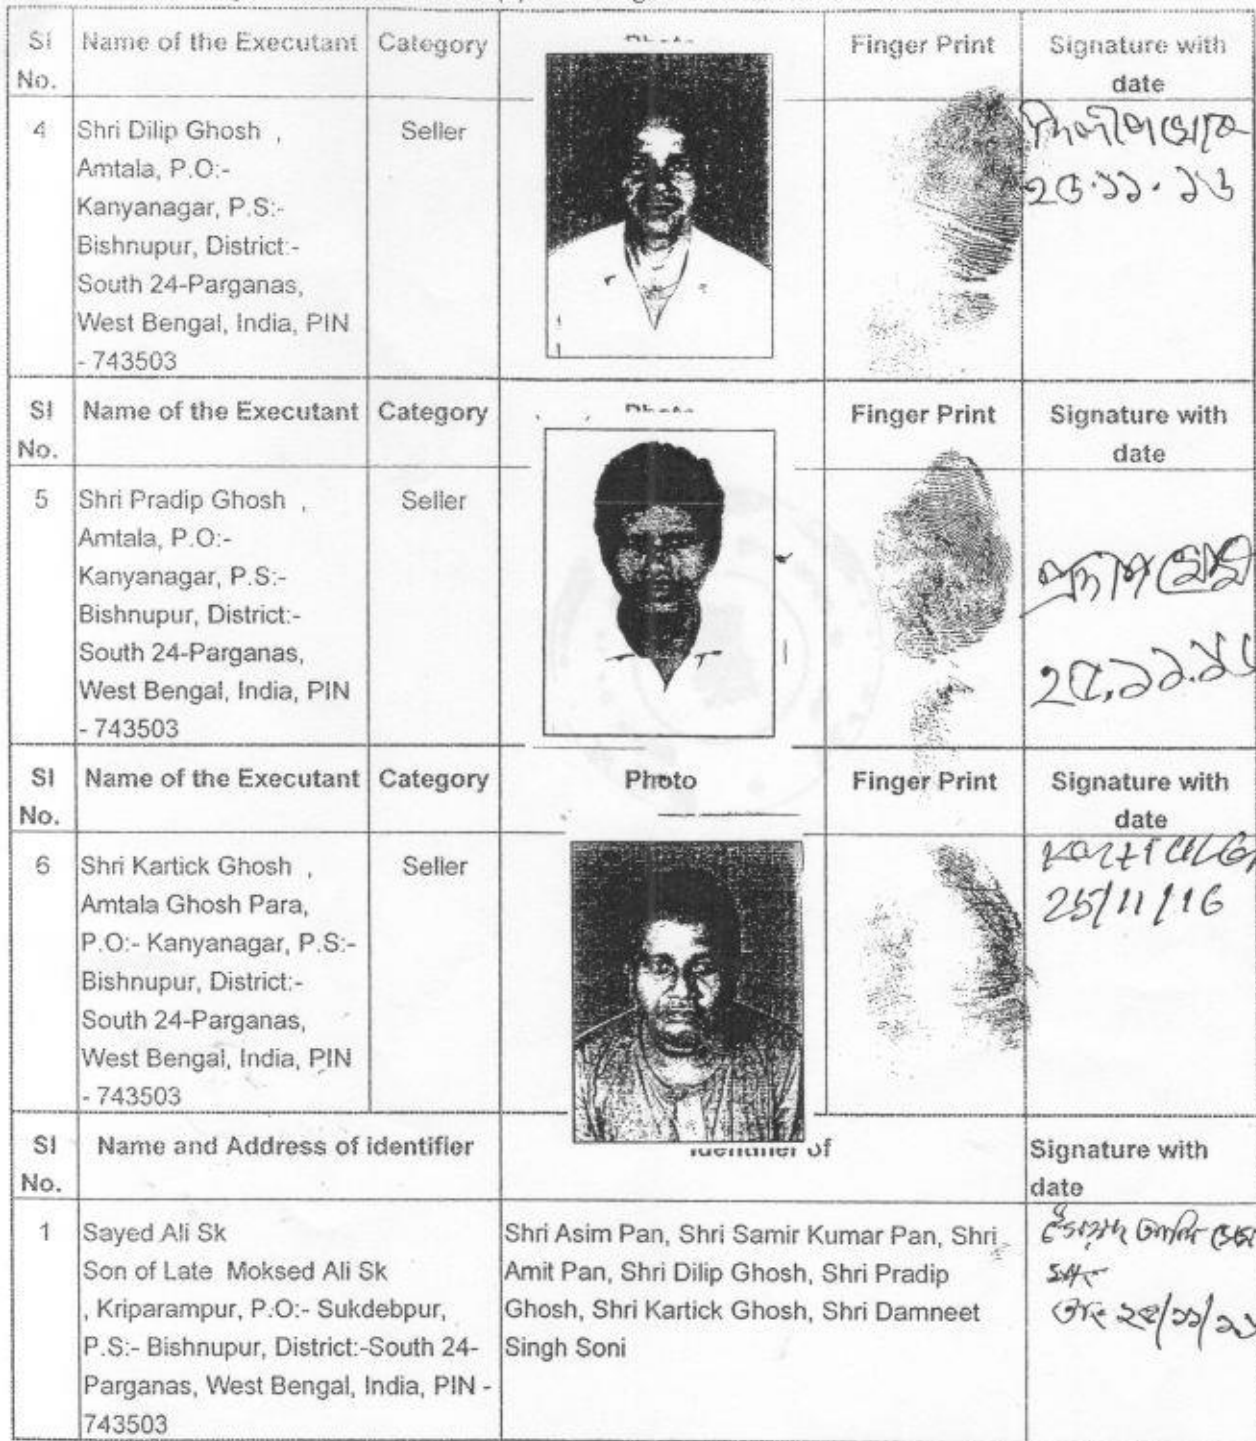 Sl No. Name of the Executant Category Finger Print Signature with date
4 Shri Dilip Ghosh , Seller
Amtala, P.O:-
Kanyanagar, P.S:-
Bishnupur, District:-
South 24-Parganas,
West Bengal, India, PIN
- 743503
২৫.১১.১৬
Sl No. Name of the Executant Category Finger Print Signature with date
5 Shri Pradip Ghosh , Seller
Amtala, P.O:-
Kanyanagar, P.S:-
Bishnupur, District:-
South 24-Parganas,
West Bengal, India, PIN
- 743503
২৫.১১.১৬
Sl No. Name of the Executant Category Photo Finger Print Signature with date
6 Shri Kartick Ghosh , Seller
Amtala Ghosh Para,
P.O:- Kanyanagar, P.S:-
Bishnupur, District:-
South 24-Parganas,
West Bengal, India, PIN
- 743503
25/11/16
Sl No. Name and Address of identifier Identifier of Signature with date
1 Sayed Ali Sk
Son of Late Moksed Ali Sk
, Kriparampur, P.O:- Sukdebpur,
P.S:- Bishnupur, District:-South 24-
Parganas, West Bengal, India, PIN -
743503
Shri Asim Pan, Shri Samir Kumar Pan, Shri
Amit Pan, Shri Dilip Ghosh, Shri Pradip
Ghosh, Shri Kartick Ghosh, Shri Damneet
Singh Soni